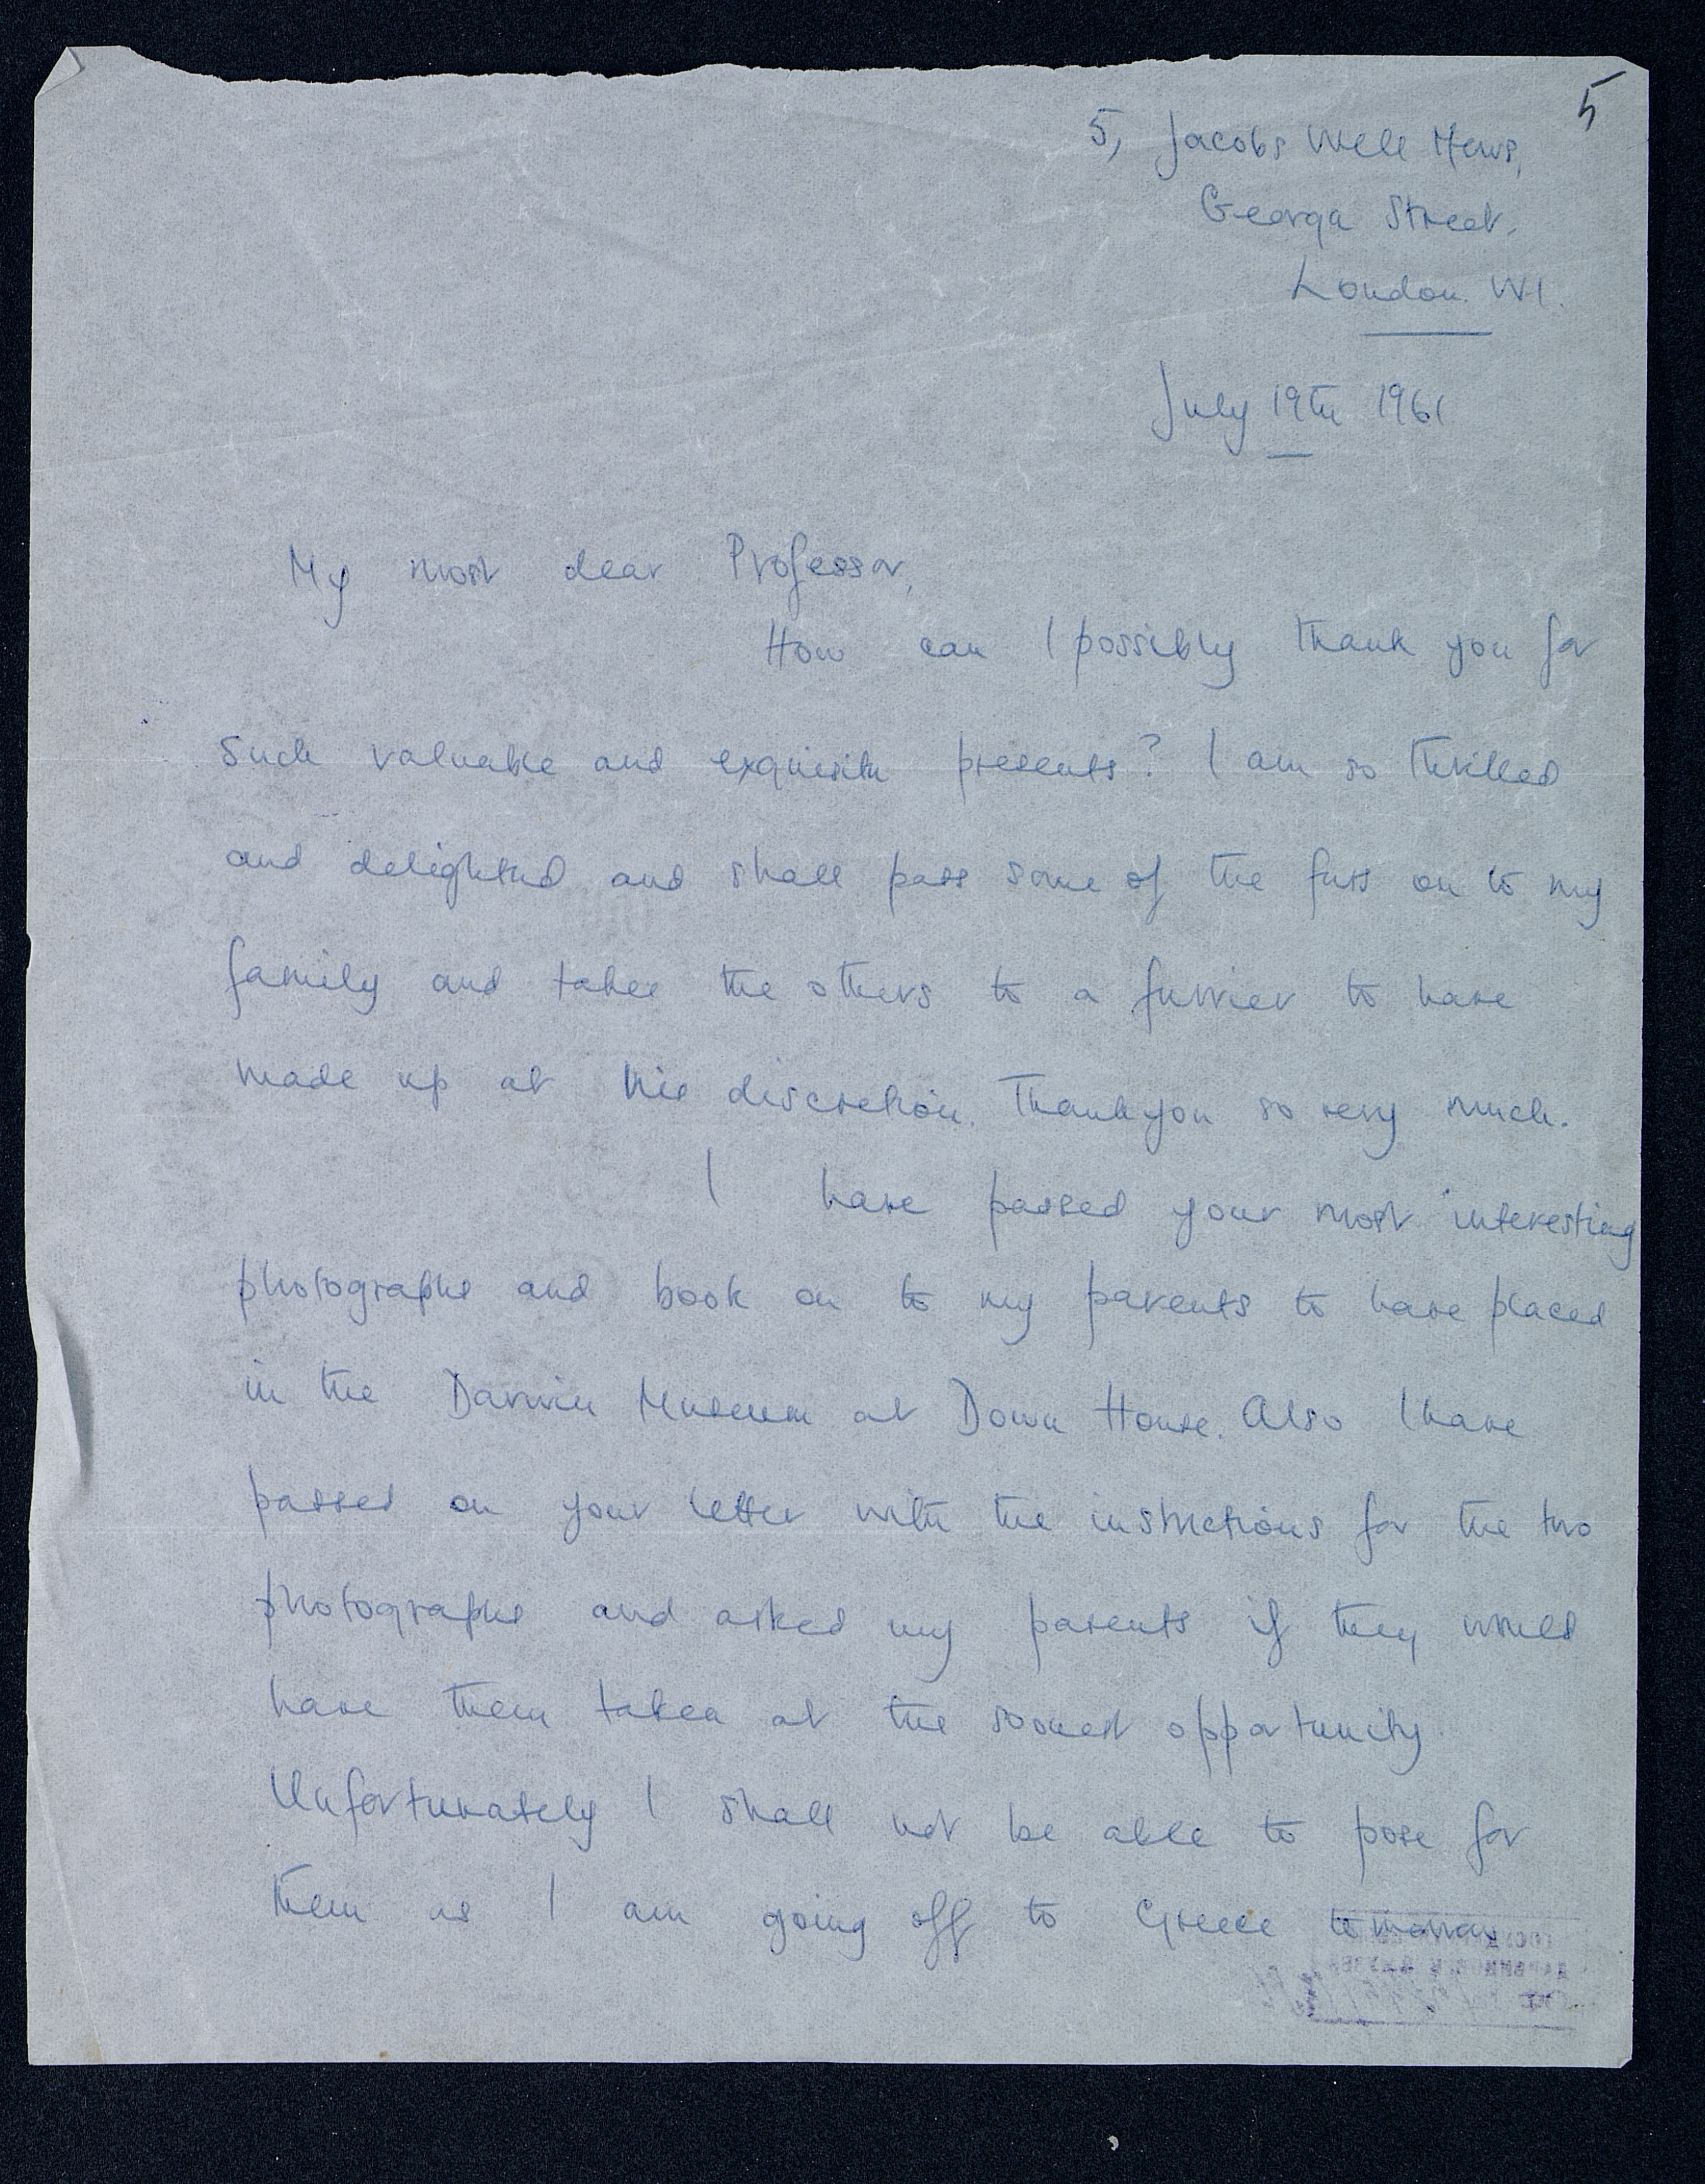 5
5, Jacobs Well Mews,
George Street,
London. W1.
July 19th 1961
My most dear Professor,
How can I possibly thank you for
such valuable and exquisite presents? I am so thrilled
and delighted and shall pass some of the furs on to my
family and take the others to a furrier to have
made up at his discretion. Thank you so very much.
I have passed your most interesting
photographs and book on to my parents to have placed
in the Darwin Museum at Down House. Also I have
passed on your letter with the instructions for the two
photographs and asked my parents if they would
have them taken at the soonest opportunity.
Unfortunately I shall not be able to pose for
them as I am going off to Greece tomorrow